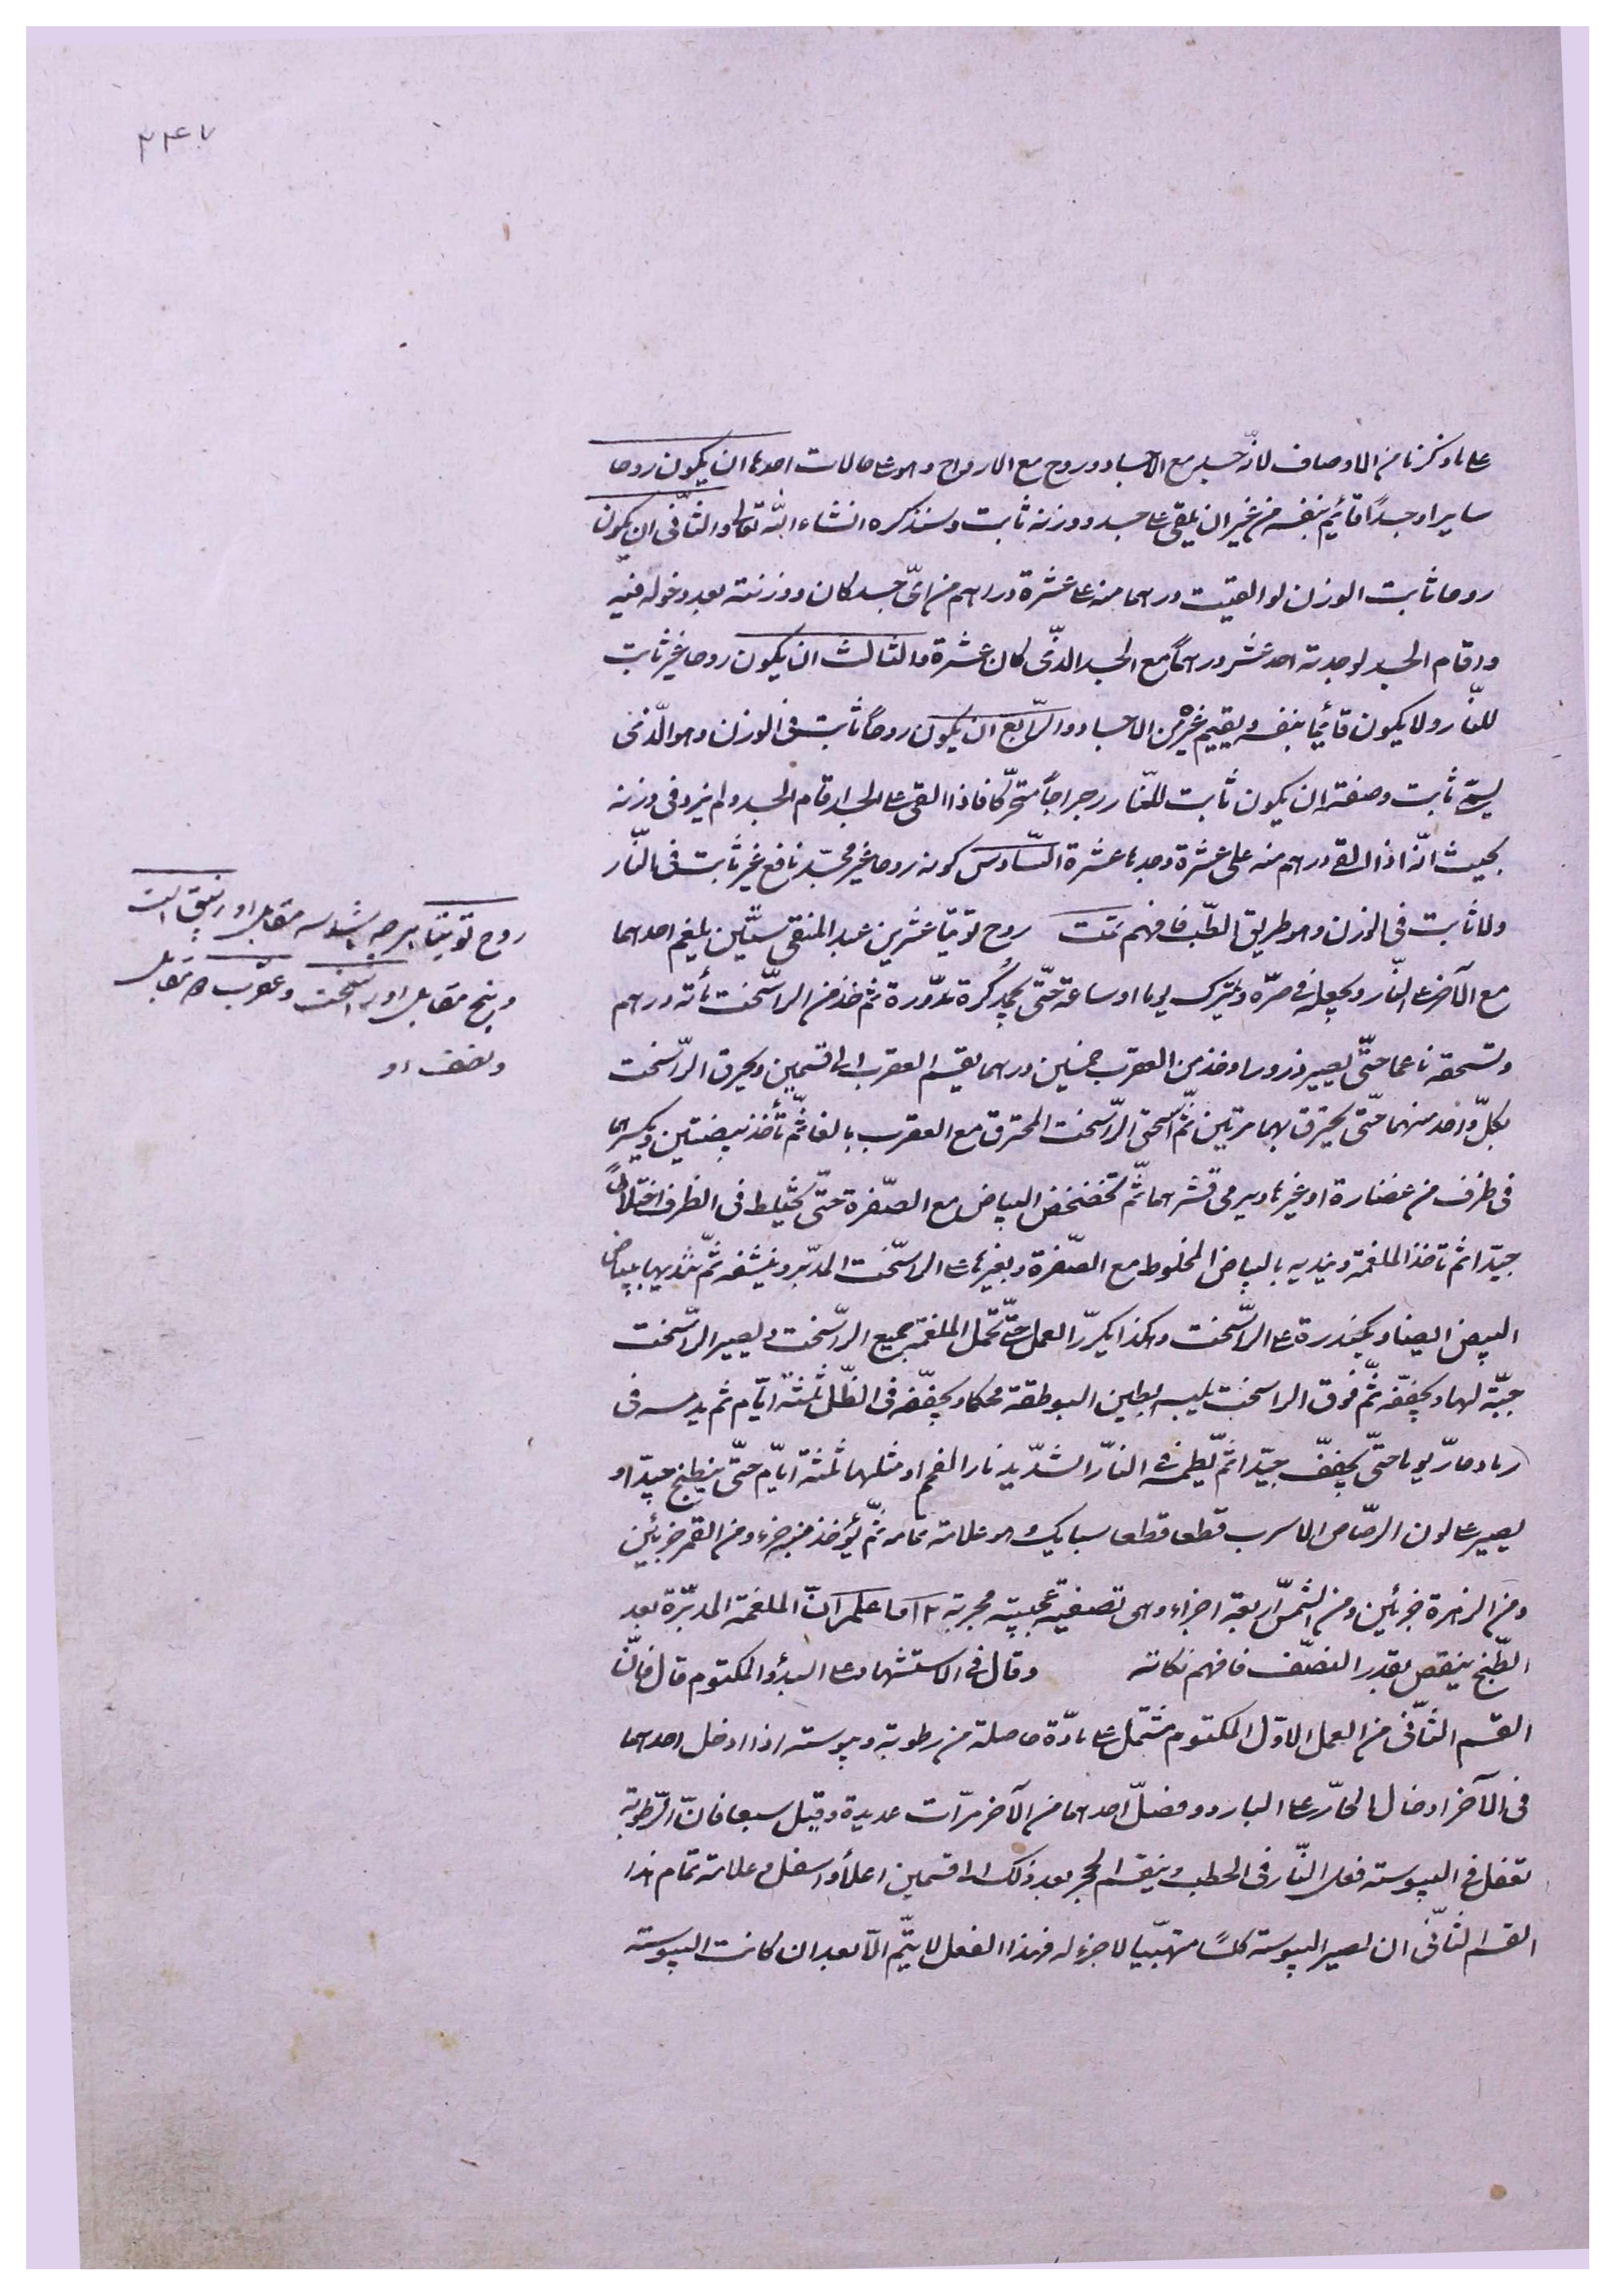 ۳۴۷
على ما ذكرنا من الاوصاف لانّه جسد مع الاجساد وروح مع الارواح وهو على حالات احدها ان يكون روحا
سايرا وجسدًا قائم بنفسه من غير ان يلقى على جسد ووزنه ثابت وسنذكره انشاء الله تعالى والثّانى ان يكون
روحا ثابت الوزن لو القيت درهما منه على عشرة دراهم من اىّ جسد كان ووزنته بعد دخوله فيه
واقام الجسد لوجدته احد عشر درهماً مع الجسد الذّى كان عشرة والثالث ان يكون روحا غير ثابت
للنّار ولا يكون قائما بنفسه ويقيم غيره من الاجساد والرّابع ان يكون روحاً ثابت فى الوزن وهو الّذى
ليس ثابت وصفته ان يكون ثابت للنّار رجراجاً متحرّكا فاذا القى على الجسد اقام الجسد ولم يزد فى وزنه
بحيث انّه اذا القى درهم منه على عشرة وجدها عشرة السّادس كونه روحا غير مجسّد نافع غير ثابت فى النّار
ولا ثابت فى الوزن وهو طريق الطّب فافهم تمت روح توتيا عشرين عبد المنقى ستّين يلغم احدهما
مع الآخر على النّار ويجعله فى صرّه ويترك يوما او ساعة حتّى يجمد كُرة مدّورة ثم خذ من الراسّخت مأته درهم
وتسحقه ناعما حتّى يصير ذرورا وخذ من العقرب خمسين درهما يقسم العقرب الى قسمين ويحرق الرّاسخت
بكلّ واحد منهما حتّى يحترق بهما مرتين ثّم اسحق الرّاسخت المحترق مع العقرب بالغا ثّم تأخذ بيضتين ويكسرهما
فى ظرف من غضارة او غيرها ويرمى قشرهما ثّم تخضخض البياض مع الصّفرة حتّى يختلط فى الظرف اختلاطاً
جيّدا ثم تاخذ الملغمة ونديه بالبياض المخلوط مع الصّفرة وبغيرها على الراسّخت المدبّر وينشفه ثّم نديها ببياض
البيض ايضا ويحندرة على الراسّخت وهكذا يكرّر العمل حتّى تحمل الملغمة جميع الرّاسخت ويصير الرّاسخت
جبّة لها ويجفّفه ثّم فوق الراسخت يلبسه بطين البوطقة محكما ويجفّفه فى الظّل ثلثة ايّام ثم يدسه فى
رماد حارّ يوما حتّى يجفّف جيّدا ثّم يطمه فى النّار الشّديد نار الفحم او مثلهما ثلثة ايّام حتّى ينطبخ جيّدا و
يصير على لون الرصّاص الاسرب قطعا قطعا سبايك وهو علامة تمامه ثّم يؤخذ منه جزء ومن القمر جزئين
ومن الزهرة جزئين ومن الشّمس اربعة اجزاء وهى تصفية عجيبة مجربة ١٢ اما علم انّ الملغمة المدبّرة بعد
الطّبخ ينقص بقدر النصّف فافهم نكاته وقال فى الاستشهاد على البدؤ المكتوم قال فانّ
القسم الثّانى من العمل الاوّل المكتوم مشتمل على مادّة حاصلة من رطوبة ويبوسته اذا ادخل احدهما
فى الآخر ادخال الحارّ على البارد وفضلّ احدهما من الآخر مرّات عديدة وقيل سبعا فانّ الرّطوبة
تفعل فى اليبوسته فعل النّار فى الحطب وينقسم الحجر بعد ذلك الى قسمين اعلا واسفل وعلامته تمام هذا
القسم الثّانى ان يصير اليبوسته كلسًا مهبّيا لا جزء له فهذا الفعل لا يتّم الّا بعد ان كانت اليبوسته
روح توتيا هرچه باشد سه مقابل او زيبق است
وپنج مقابل او راسخت وعقرب دو مقابل
ونصف او